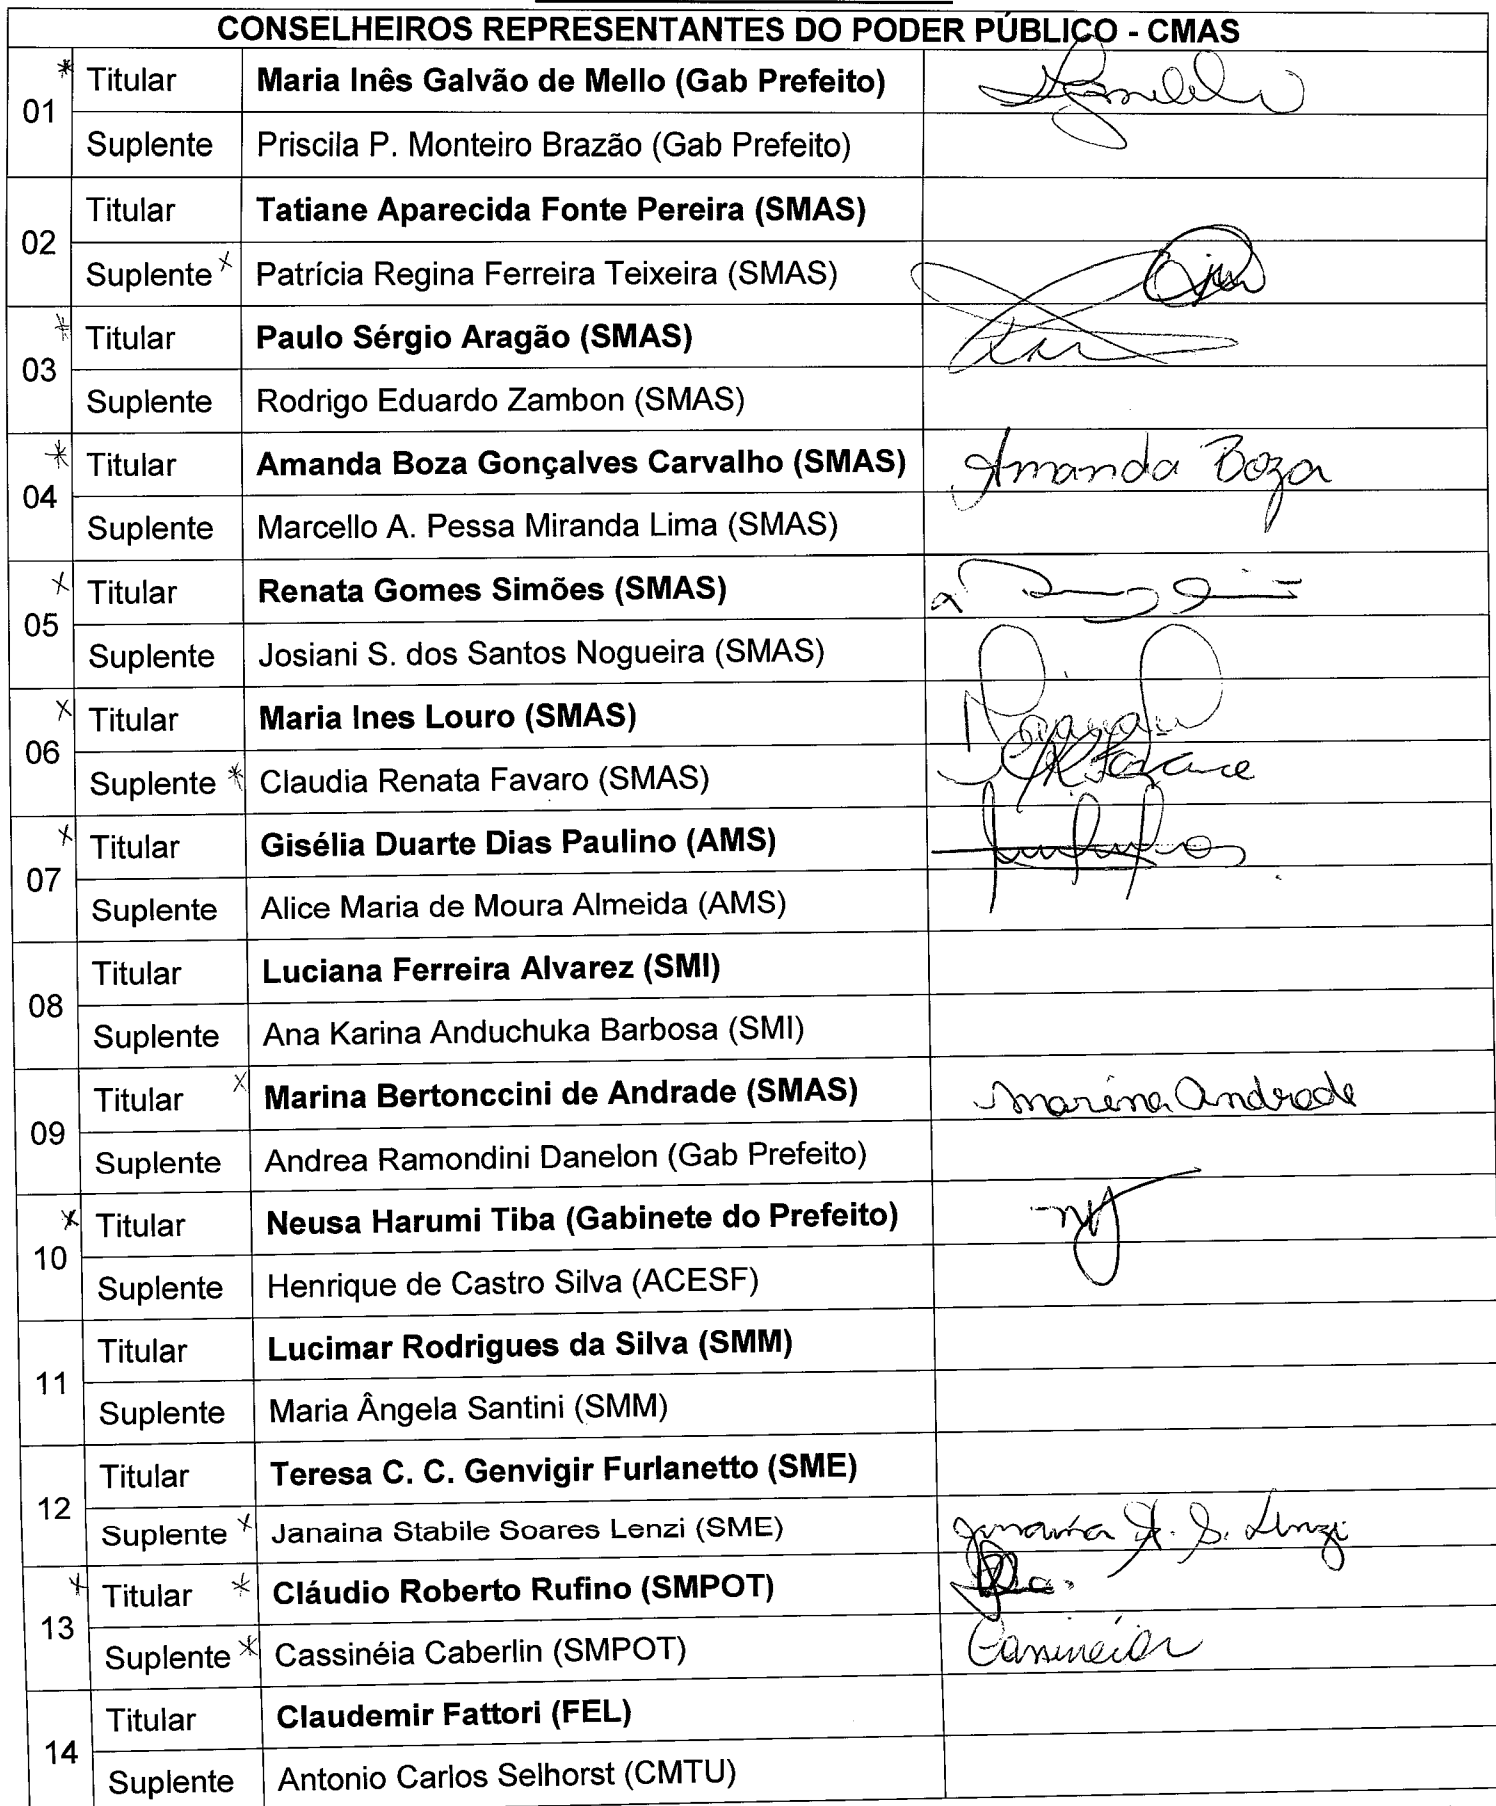 CONSELHEIROS REPRESENTANTES DO PODER PÚBLICO - CMAS
01
* Titular Maria Inês Galvão de Mello (Gab Prefeito)
Suplente Priscila P. Monteiro Brazão (Gab Prefeito)
02
Titular Tatiane Aparecida Fonte Pereira (SMAS)
Suplente x Patrícia Regina Ferreira Teixeira (SMAS)
03
* Titular Paulo Sérgio Aragão (SMAS)
Suplente Rodrigo Eduardo Zambon (SMAS)
04
* Titular Amanda Boza Gonçalves Carvalho (SMAS) Amanda Boza
Suplente Marcello A. Pessa Miranda Lima (SMAS)
05
x Titular Renata Gomes Simões (SMAS)
Suplente Josiani S. dos Santos Nogueira (SMAS)
06
x Titular Maria Ines Louro (SMAS)
Suplente * Claudia Renata Favaro (SMAS)
07
x Titular Gisélia Duarte Dias Paulino (AMS)
Suplente Alice Maria de Moura Almeida (AMS)
08
Titular Luciana Ferreira Alvarez (SMI)
Suplente Ana Karina Anduchuka Barbosa (SMI)
09
Titular x Marina Bertonccini de Andrade (SMAS) Marina Andrade
Suplente Andrea Ramondini Danelon (Gab Prefeito)
10
x Titular Neusa Harumi Tiba (Gabinete do Prefeito)
Suplente Henrique de Castro Silva (ACESF)
11
Titular Lucimar Rodrigues da Silva (SMM)
Suplente Maria Ângela Santini (SMM)
12
Titular Teresa C. C. Genvigir Furlanetto (SME)
Suplente x Janaina Stabile Soares Lenzi (SME) Janaina S. S. Lenzi
13
x Titular * Cláudio Roberto Rufino (SMPOT)
Suplente * Cassinéia Caberlin (SMPOT) Cassinéia
14
Titular Claudemir Fattori (FEL)
Suplente Antonio Carlos Selhorst (CMTU)